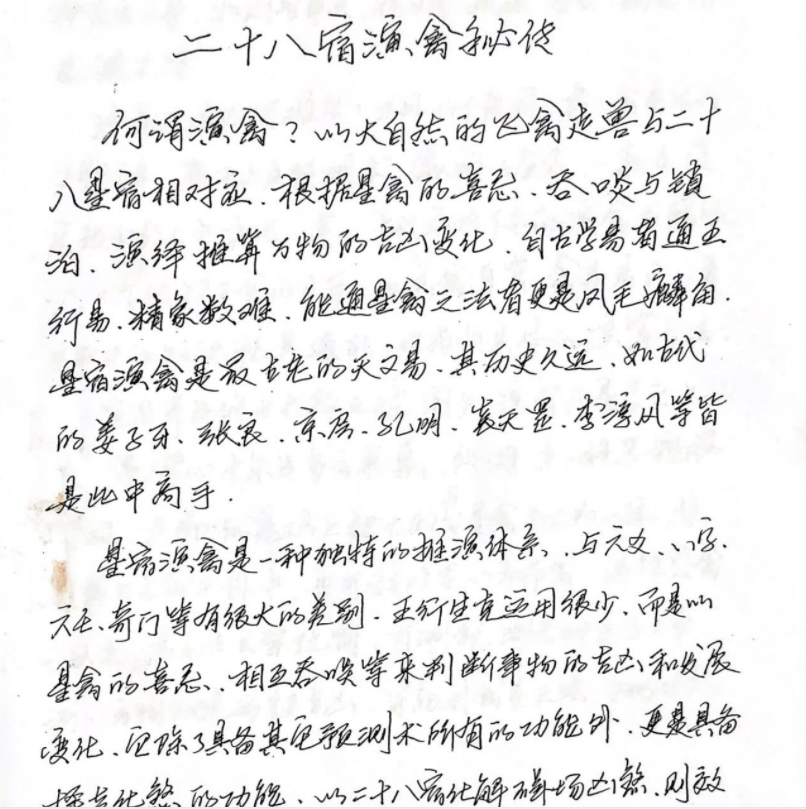 二十八宿演禽秘传
何谓演禽？以大自然的飞禽走兽与二十
八星宿相对应.根据星禽的喜忌、吞啖与锁
泊、演绎推算万物的吉凶变化.自古学易者通五
行易.精象数难、能通星禽之法者更是凤毛麟角.
星宿演禽是最古老的天文易、其历史久远、如古代
的姜子牙、张良、京房、孔明、袁天罡、李淳风等皆
是此中高手.
星宿演禽是一种独特的推演体系、与六爻、八字、
六壬、奇门等有很大的差别.五行生克运用很少、而是以
星禽的喜忌、相互吞啖等来判断事物的吉凶和发展
变化.它除了具备其它预测术所有的功能外、更是具备
择吉化煞的功能、以二十八宿化解磁场凶煞、则效